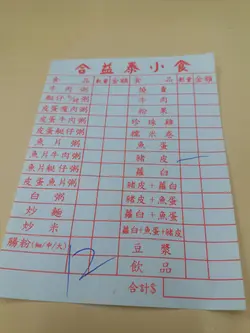 合益泰小食
食品 數量 金額 食品 數量 金額
牛肉粥 燒賣
艇仔粥 牛肉
皮蛋瘦肉粥 粉果
皮蛋牛肉粥 珍珠雞
皮蛋艇仔粥 糯米卷
魚片粥 魚蛋
魚片牛肉粥 豬皮
魚片艇仔粥 蘿白
皮蛋魚片粥 豬皮+蘿白
白粥 豬皮+魚蛋
炒麵 蘿白+魚蛋
炒米 蘿白+魚蛋+豬皮
腸粉(細/中/大) 豆漿
12 飲品
合計$